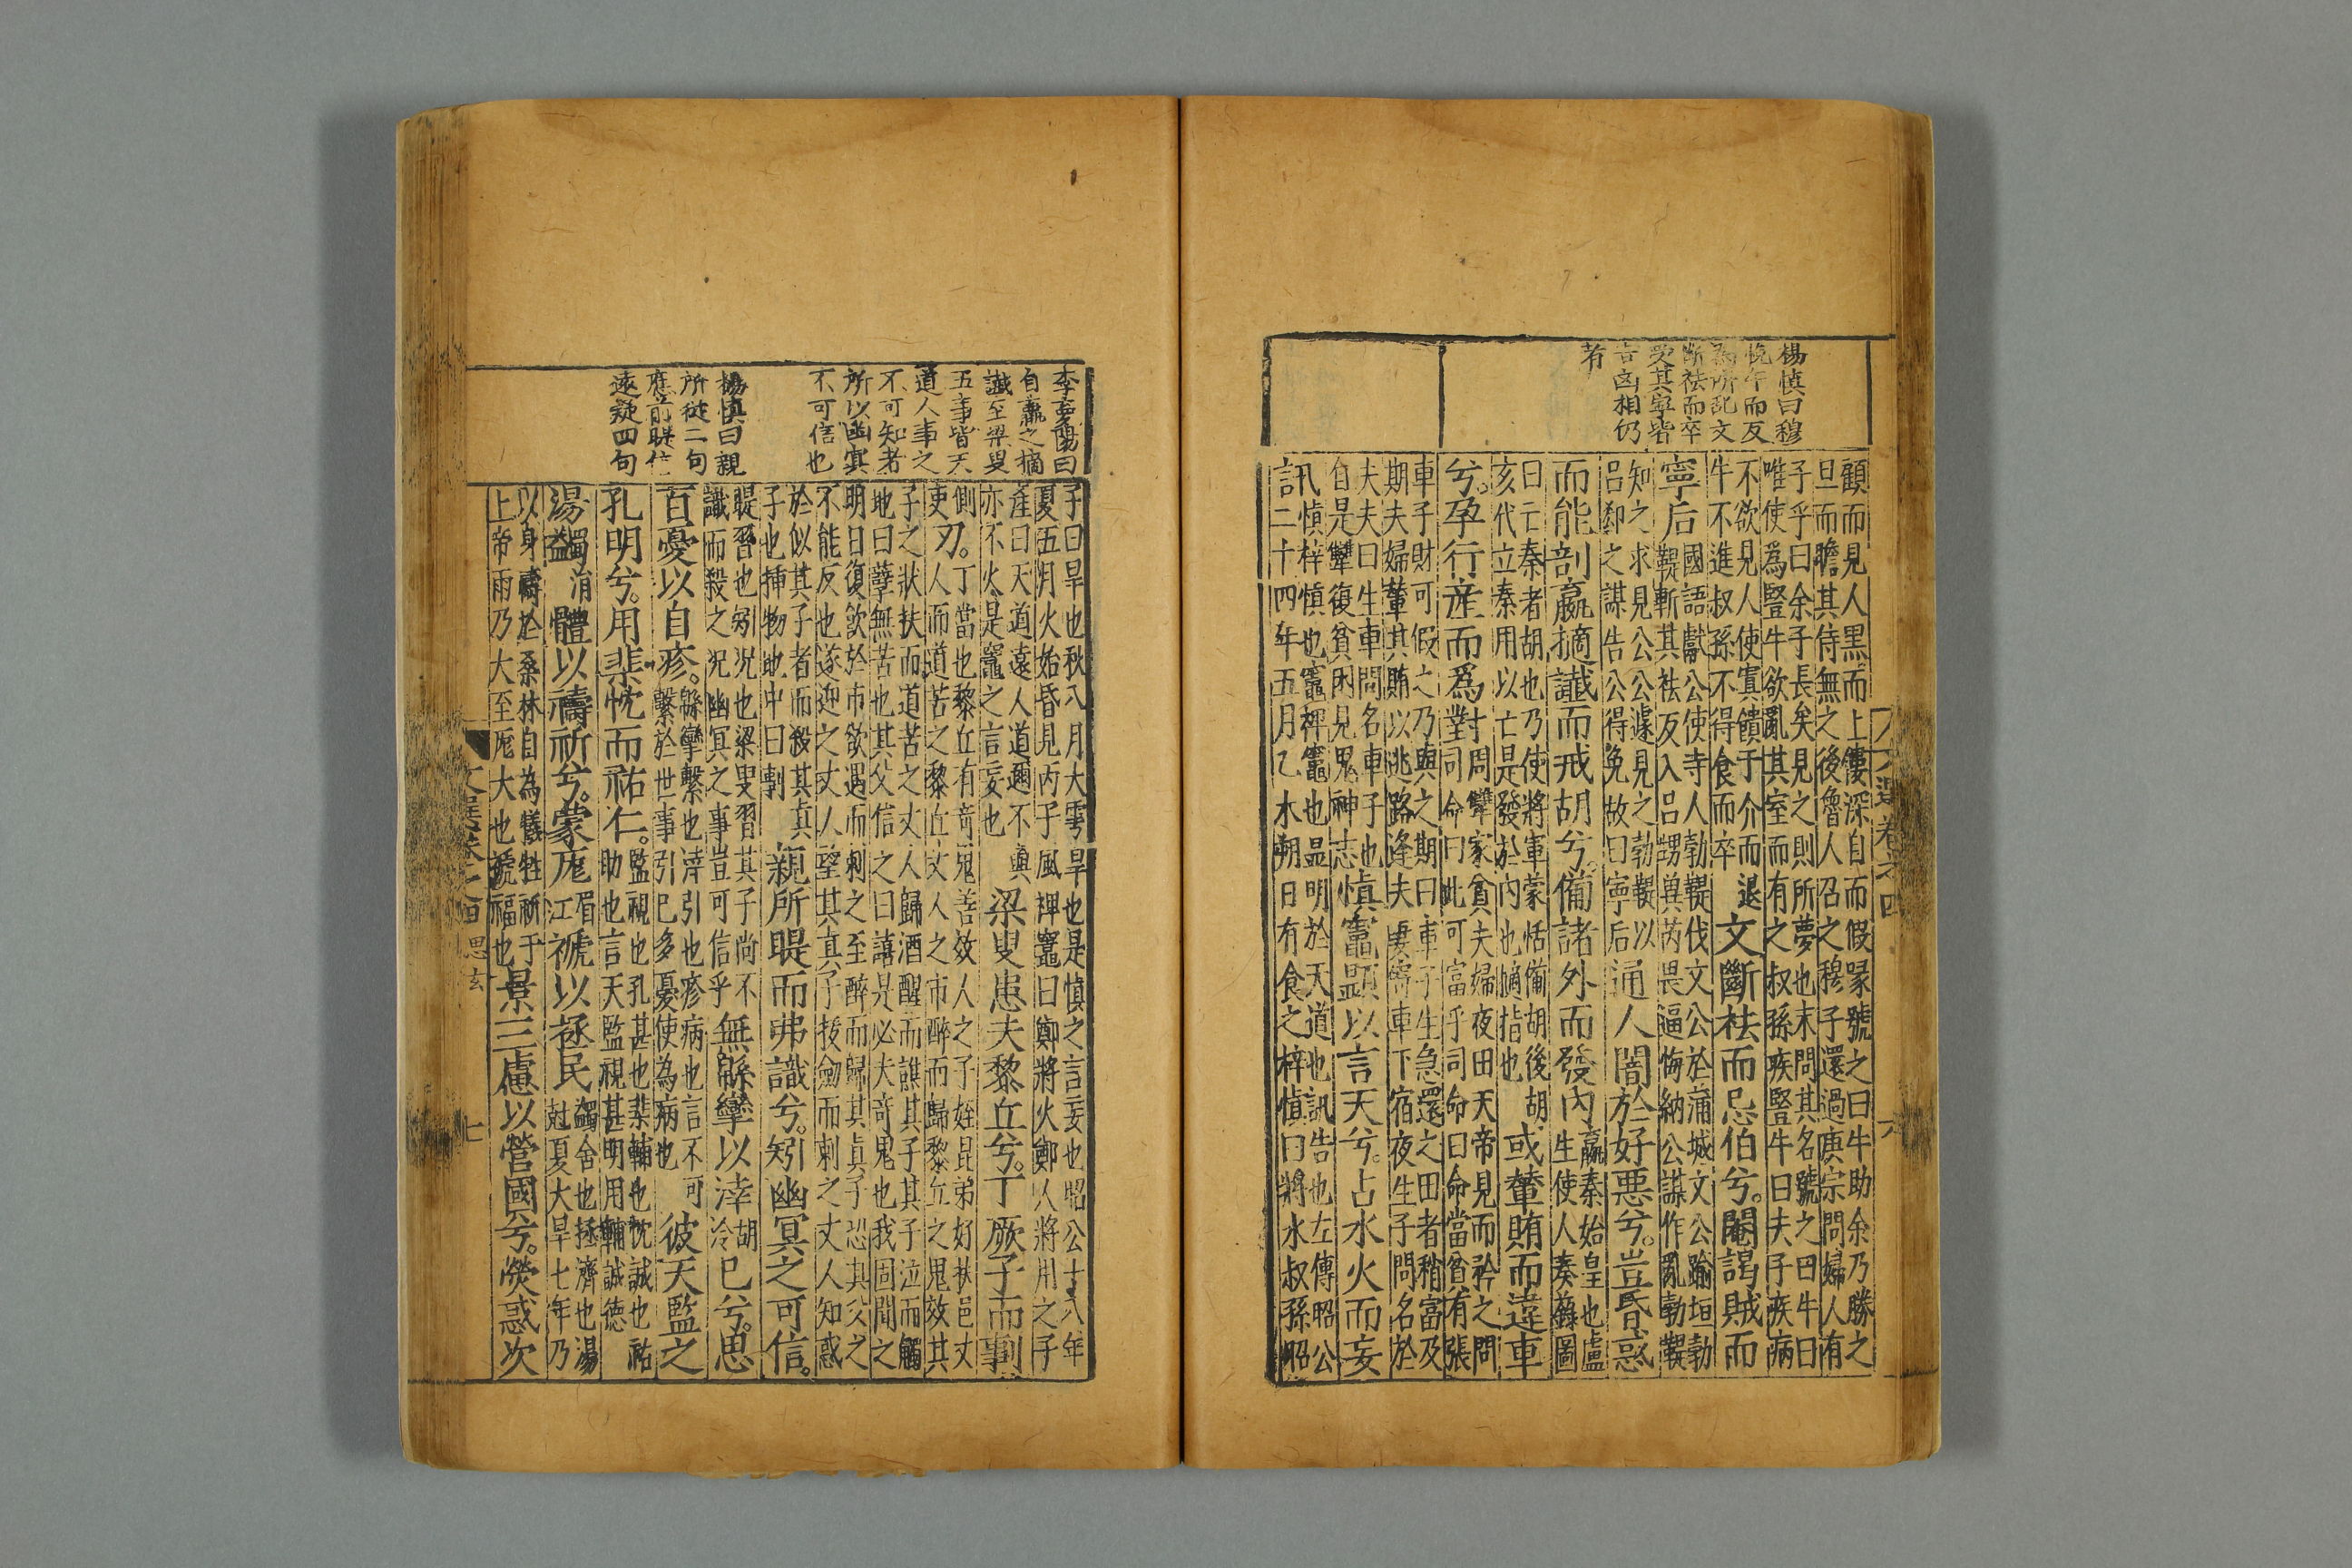 楊慎曰穆
悅牛而反
為所亂文
斷袪而卒
受其寧皆
吉凶相仍
者
顧而見人黑而上僂深目而假喙號之曰牛助余乃勝之
旦而瞻其侍無之後魯人召之穆子還過庚宗問婦人有
子乎曰余子長矣見之則所夢也未問其名號之曰牛曰
唯使為豎牛欲亂其室而有之叔孫疾豎牛曰夫子疾病
不欲見人使寘饋于介而退
牛不進叔孫不得食而卒
文斷袪而忌伯兮。閹謁賊而
寧后
國語獻公使寺人勃鞮伐文公於蒲城文公踰垣勃鞮
鞮斬其袪及入呂甥兾芮畏逼悔納公謀作亂勃鞮
知之求見公公遽見之勃鞮以
呂郤之謀告公公得免故曰寧后
通人闇於好惡兮。豈昏惑
而能剖嬴擿讖而戒胡兮。備諸外而發內
嬴秦始皇也盧
生使人奏籙圖
曰亡秦者胡也乃使將軍蒙恬備胡後胡
亥代立秦用以亡是發於內也擿指也
或輦賄而違車
兮。孕行產而為對
周犨家貧夫婦夜田天帝見而矜之問
司命曰此可富乎司命曰命當貧有張
車子財可假之乃與之期曰車子生急還之田者稍富及
期夫婦輦其賄以逃路逢夫妻寄車下宿夜生子問名於
夫夫曰生車間名車子也
自是犨復貧困見鬼神志
慎竈顯以言天兮。占水火而妄
訊
慎梓慎也竈裨竈也显明於天道也訊告也左傳昭公
二十四年五月乙未朔日有食之梓慎曰將水叔孫昭
文選卷十四
六
李夢陽曰
自嬴之擿
讖至梁叟
五事皆天
道人事之
不可知者
所以幽冥
不可信也
楊慎曰親
所徒二句
應前賤信
遠疑四句
子曰旱也秋八月大雩旱也是慎之言妄也昭公十八年
夏五月火始昏見丙子風裨竈曰鄭將火鄭人將用之子
產曰天道遠人道邇不與
亦不火是竈之言妄也
梁叟患夫黎丘兮。丁厥子而剚
刃。
丁當也黎丘有奇鬼善效人之子姪昆弟好扶邑丈
人而道苦之黎丘丈人之市醉而歸黎丘之鬼效其
子之狀扶而道苦之丈人歸酒醒而譙其子其子泣而觸
地曰孽無苦也其父信之曰譆是必夫奇鬼也我固聞之
明日復飲於市欲遇而刺之至醉而歸其真子恐其父之
不能反也遂迎之丈人望其真子拔劍而刺之丈人知惑
於似其子者而殺其真
子也揷物地中曰剚
親所睼而弗識兮。矧幽冥之可信。
睼習也矧況也梁叟習其子尚不
識而殺之況幽冥之事豈可信乎
無緜攣以涬
胡
冷
己兮。思
百憂以自疹。
緜攣繫也涬引也疹病也言不可
繫於世事引已多憂使為病也
彼天監之
孔明兮。用棐忱而祐仁。
監視也孔甚也棐輔也忱誠也祐
助也言天監視甚明用輔誠德
湯蠲
涓
體以禱祈兮。蒙厖
眉
江
禠以拯民
蠲舍也拯濟也湯
尅夏大旱七年乃
以身禱於桑林自為犧牲祈于
上帝雨乃大至厖大也禠福也
景三慮以營國兮。熒惑次
思玄
七